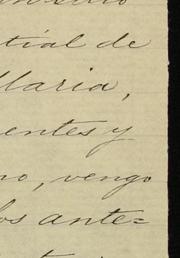 tial de
Maria,
entes y
no, vengo
los ante=